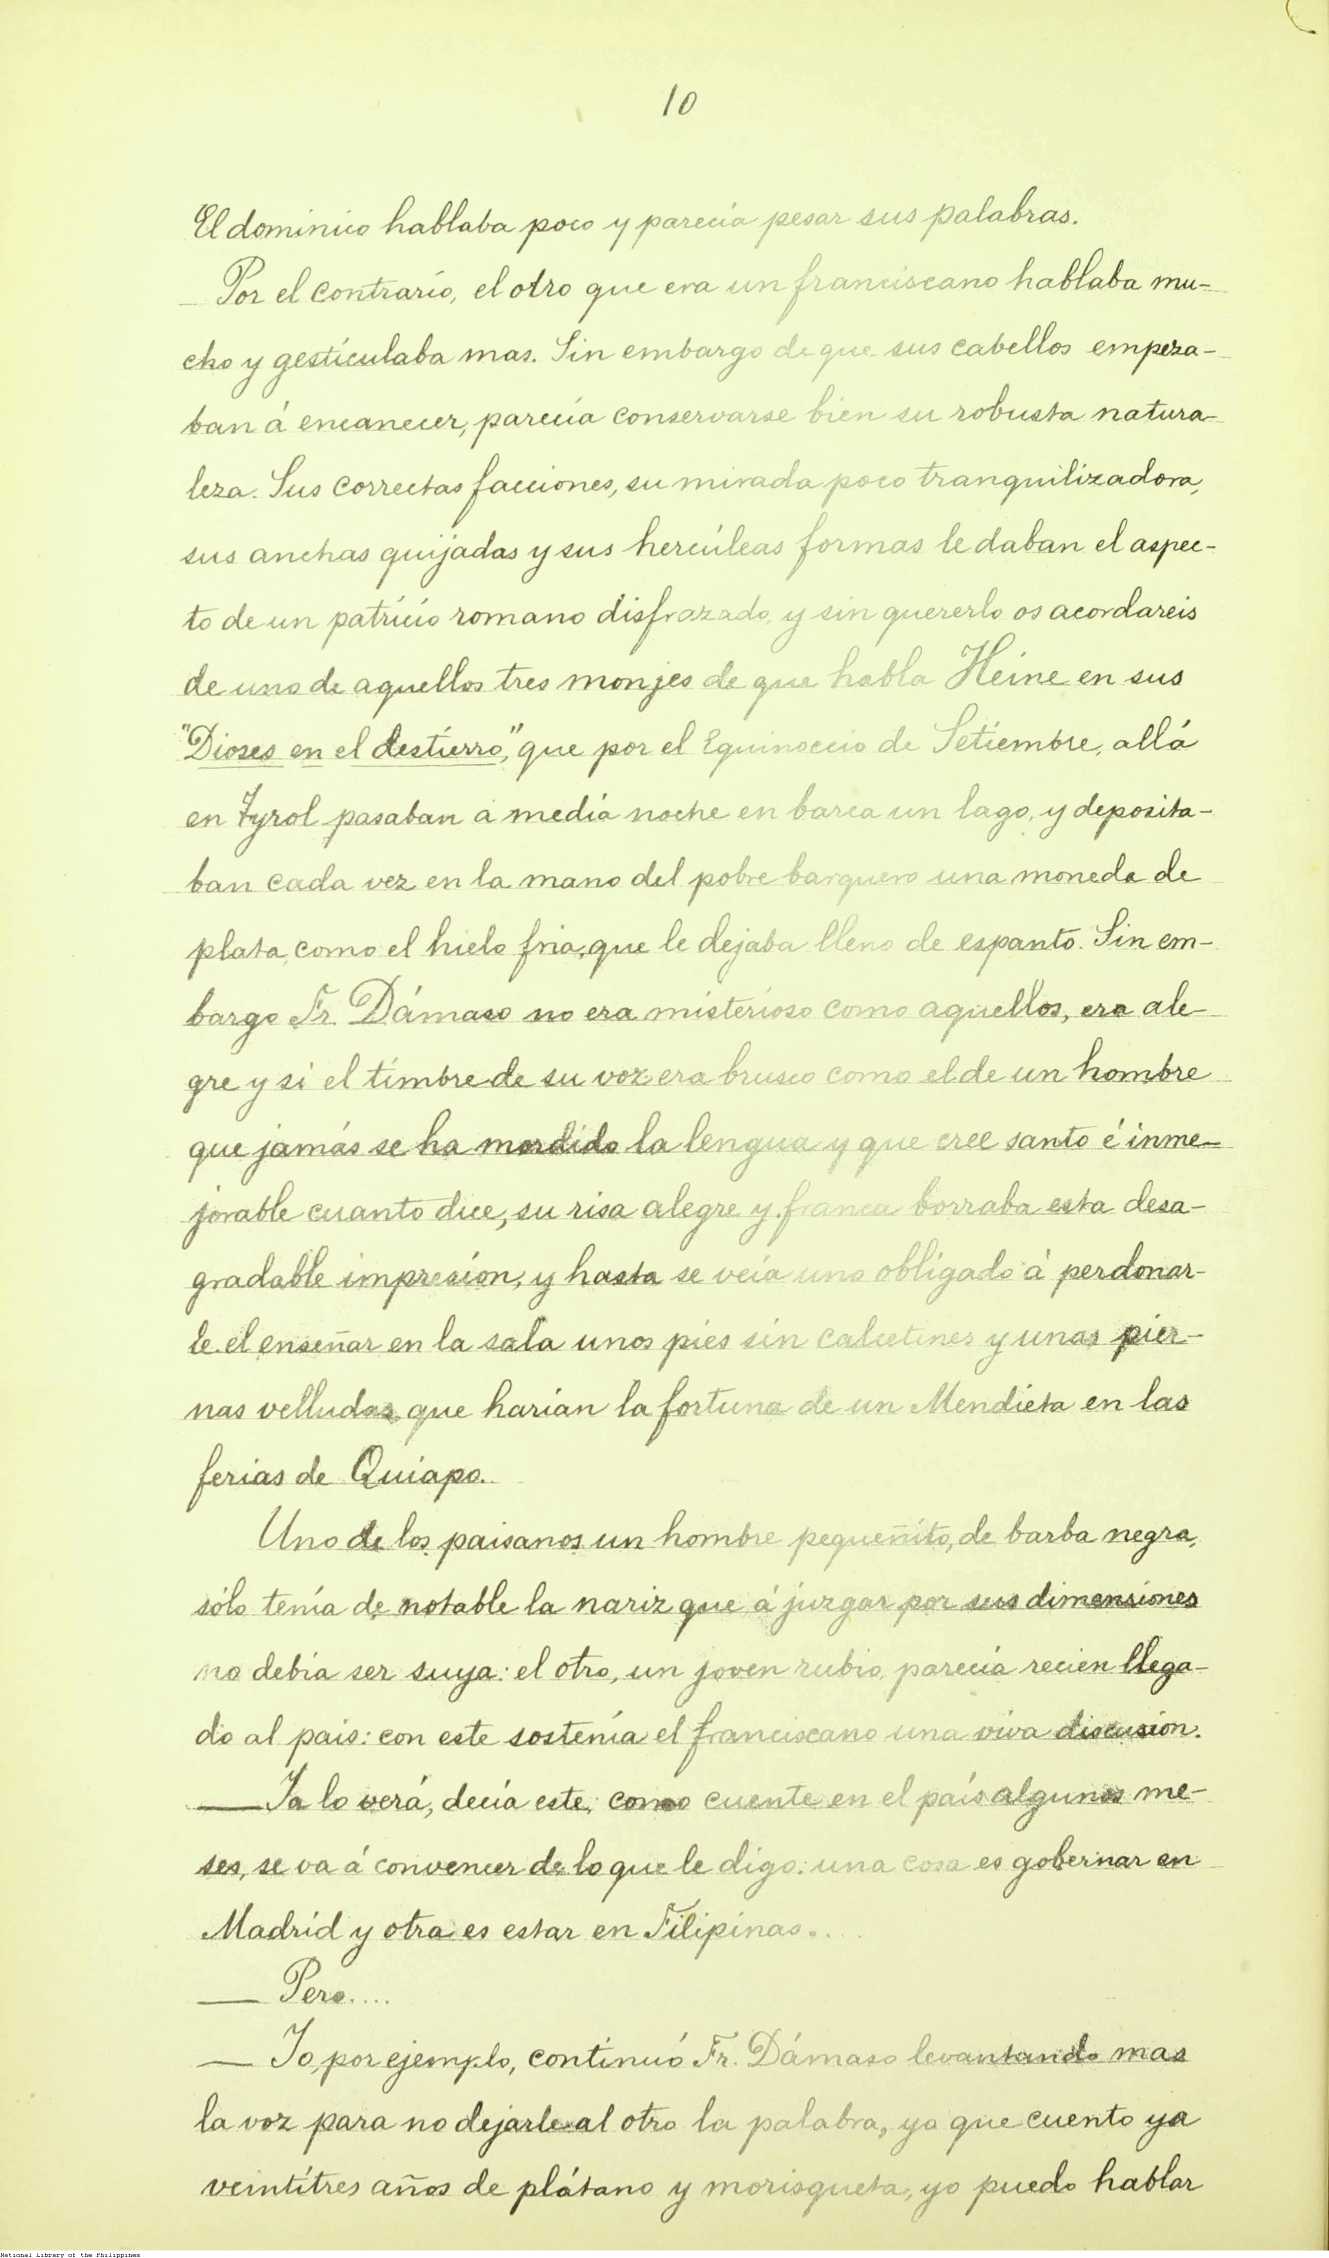 10
El dominico hablaba poco y parecía pesar sus palabras.
Por el contrario, el otro que era un franciscano hablaba mu-
cho y gesticulaba mas. Sin embargo de que sus cabellos empeza-
ban á encanecer, parecía conservarse bien su robusta natura-
leza. Sus correctas facciones, su mirada poco tranquilizadora,
sus anchas quijadas y sus hercúleas formas le daban el aspec-
to de un patricio romano disfrazado, y sin quererlo os acordareis
de uno de aquellos tres monjes de que habla Heine en sus
"Dioses en el destierro," que por el Equinoccio de Setiembre, allá
en Tyrol pasaban á media noche en barca un lago, y deposita-
ban cada vez en la mano del pobre barquero una moneda de
plata, como el hielo fria, que le dejaba lleno de espanto. Sin em-
bargo Fr. Dámaso no era misterioso como aquellos, era ale-
gre y si el timbre de su voz era brusco como el de un hombre
que jamás se ha mordido la lengua y que cree santo é inme-
jorable cuanto dice, su risa alegre y franca borraba esta desa-
gradable impresión, y hasta se veía uno obligado á perdonar-
le el enseñar en la sala unos pies sin calcetines y unas pier-
nas velludas que harían la fortuna de un Mendieta en las
ferias de Quiapo.
Uno de los paisanos un hombre pequeñito, de barba negra,
sólo tenía de notable la nariz que á juzgar por sus dimensiones
no debía ser suya: el otro, un joven rubio, parecía recien llega-
do al pais: con este sostenía el franciscano una viva discusión.
— Ya lo verá, decía este, como cuente en el país algunos me-
ses, se va á convencer de lo que le digo: una cosa es gobernar en
Madrid y otra es estar en Filipinas....
— Pero....
— Yo, por ejemplo, continuó Fr. Dámaso levantando mas
la voz para no dejarle al otro la palabra, yo que cuento ya
veintitres años de plátano y morisqueta, yo puedo hablar
National Library of the Philippines